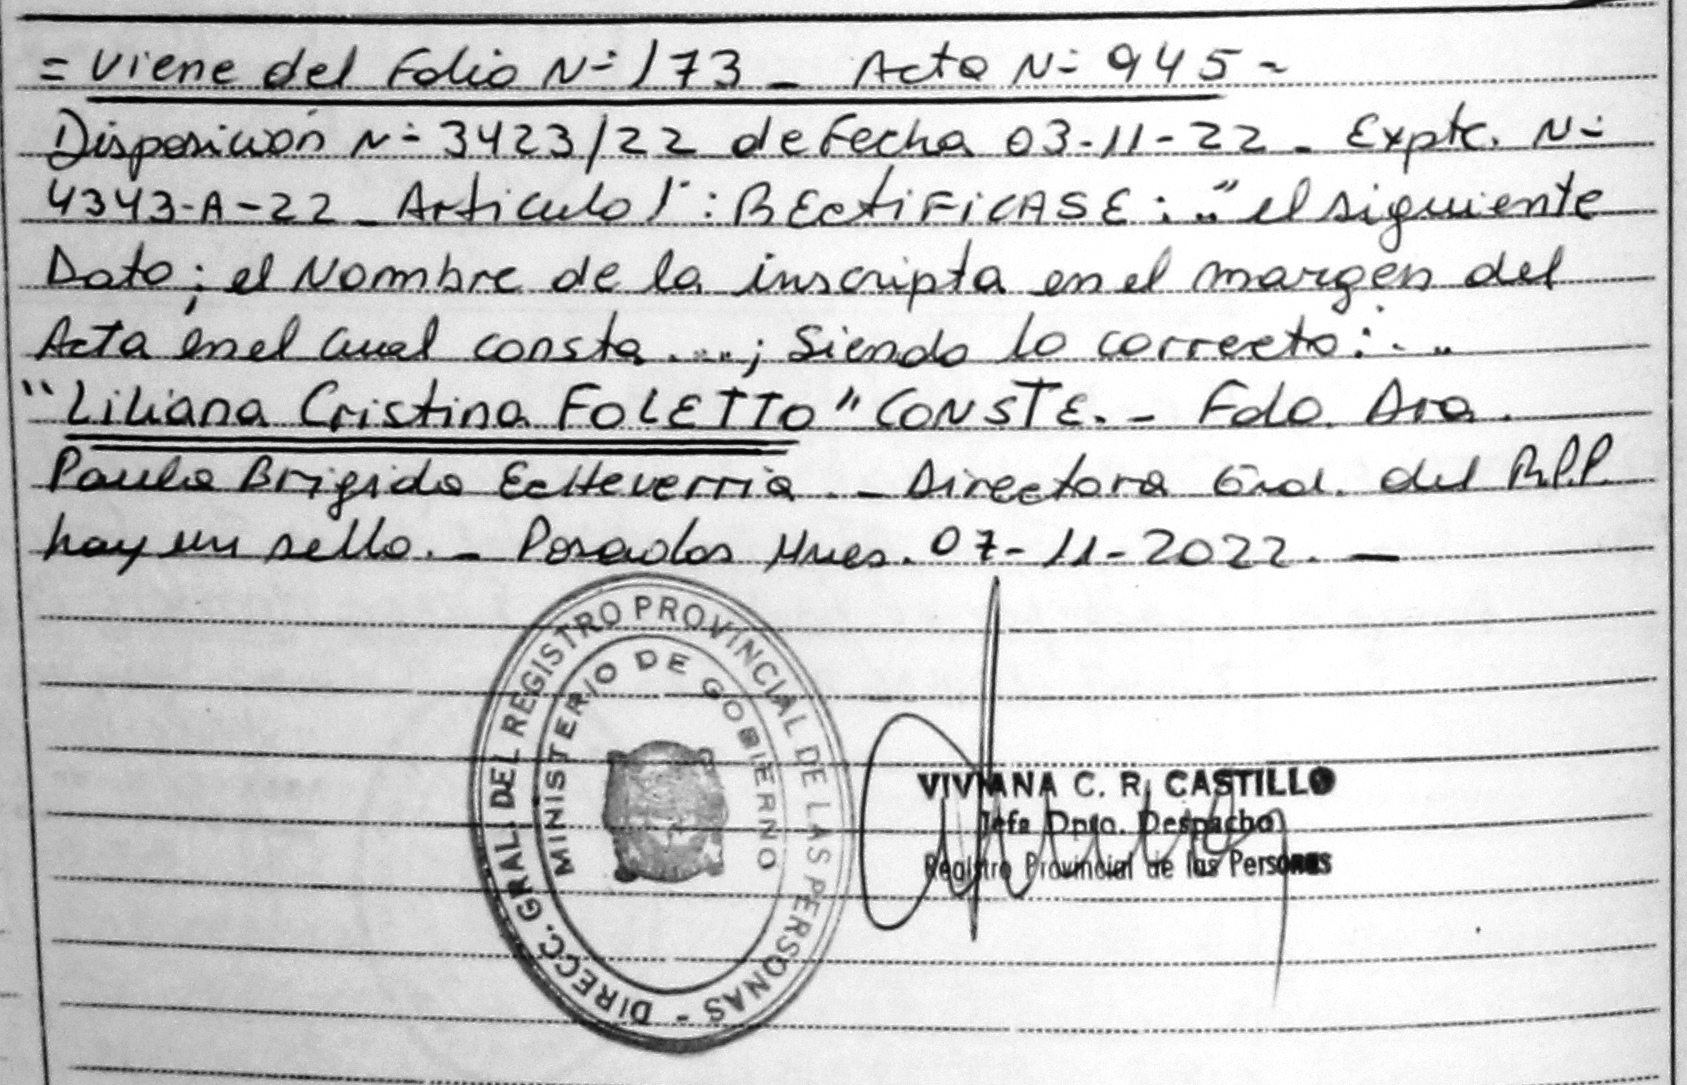 = Viene del Folio N-173 - Acta N- 945 -
Disposición N- 3423/22 de Fecha 03-11-22 - Expte. N-
4343-A-22 - Articulo 1°: RECTIFICASE: .." el siguiente
Dato; el Nombre de la inscripta en el margen del
Acta en el cual consta ....; Siendo lo correcto: ...
"Liliana Cristina FOLETTO" CONSTE. - Fdo. Dra.
Paula Brigida Echeverria. - Directora Gral. del R.P.P.
hay un sello. - Posadas Mnes. 07-11-2022. -
DIRECC. GRAL. DEL REGISTRO PROVINCIAL DE LAS PERSONAS -
MINISTERIO DE GOBIERNO
VIVIANA C. R. CASTILLO
Jefa Dpto. Despacho
Registro Provincial de las Personas